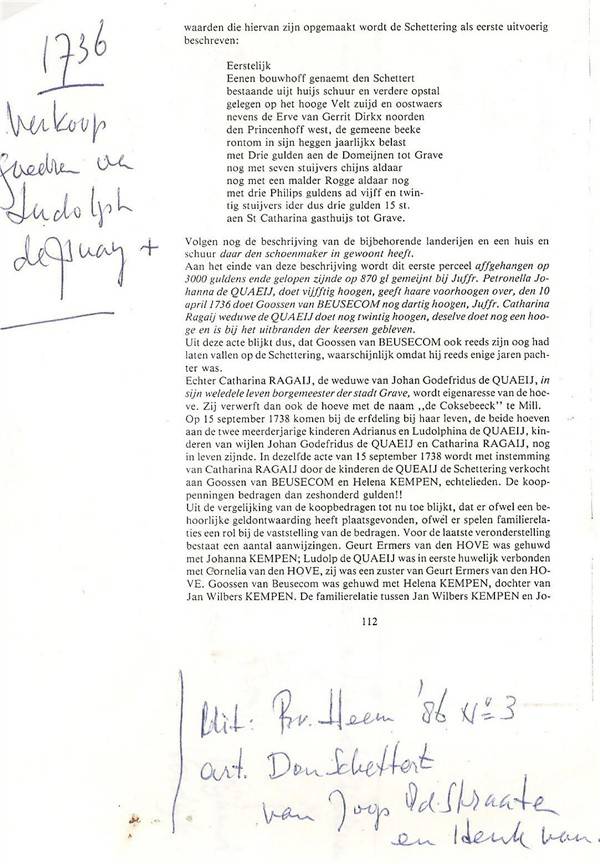 1736
Verkoop
goedren van
Ludolph
de Quay +
waarden die hiervan zijn opgemaakt wordt de Schettering als eerste uitvoerig
beschreven:
Eerstelijk
Eenen bouwhoff genaemt den Schettert
bestaande uijt huijs schuur en verdere opstal
gelegen op het hooge Velt zuijd en oostwaers
nevens de Erve van Gerrit Dirkx noorden
den Princenhoff west, de gemeene beeke
rontom in sijn heggen jaarlijkx belast
met Drie gulden aen de Domeijnen tot Grave
nog met seven stuijvers chijns aldaar
nog met een malder Rogge aldaar nog
met drie Philips guldens ad vijff en twin-
tig stuijvers ider dus drie gulden 15 st.
aen St Catharina gasthuijs tot Grave.
Volgen nog de beschrijving van de bijbehorende landerijen en een huis en
schuur daar den schoenmaker in gewoont heeft.
Aan het einde van deze beschrijving wordt dit eerste perceel affgehangen op
3000 guldens ende gelopen zijnde op 870 gl gemeijnt bij Juffr. Petronella Jo-
hanna de QUAEIJ, doet vijfftig hoogen, geeft haare voorhoogen over, den 10
april 1736 doet Goossen van BEUSECOM nog dartig hoogen, Juffr. Catharina
Ragaij weduwe de QUAEIJ doet nog twintig hoogen, deselve doet nog een hoo-
ge en is bij het uitbranden der keersen gebleven.
Uit deze acte blijkt dus, dat Goossen van BEUSECOM ook reeds zijn oog had
laten vallen op de Schettering, waarschijnlijk omdat hij reeds enige jaren pach-
ter was.
Echter Catharina RAGAIJ, de weduwe van Johan Godefridus de QUAEIJ, in
sijn weledele leven borgemeester der stadt Grave, wordt eigenaresse van de hoe-
ve. Zij verwerft dan ook de hoeve met de naam ,,de Coksebeeck" te Mill.
Op 15 september 1738 komen bij de erfdeling bij haar leven, de beide hoeven
aan de twee meerderjarige kinderen Adrianus en Ludolphina de QUAEIJ, kin-
deren van wijlen Johan Godefridus de QUAEIJ en Catharina RAGAIJ, nog
in leven zijnde. In dezelfde acte van 15 september 1738 wordt met instemming
van Catharina RAGAIJ door de kinderen de QUEAIJ de Schettering verkocht
aan Goossen van BEUSECOM en Helena KEMPEN, echtelieden. De koop-
penningen bedragen dan zeshonderd gulden!!
Uit de vergelijking van de koopbedragen tot nu toe blijkt, dat er ofwel een be-
hoorlijke geldontwaarding heeft plaatsgevonden, ofwel er spelen familierela-
ties een rol bij de vaststelling van de bedragen. Voor de laatste veronderstelling
bestaat een aantal aanwijzingen. Geurt Ermers van den HOVE was gehuwd
met Johanna KEMPEN; Ludolp de QUAEIJ was in eerste huwelijk verbonden
met Cornelia van den HOVE, zij was een zuster van Geurt Ermers van den HO-
VE. Goossen van Beusecom was gehuwd met Helena KEMPEN, dochter van
Jan Wilbers KEMPEN. De familierelatie tussen Jan Wilbers KEMPEN en Jo-
112
Uit: Br. Heem '86 No 3
art. Den Schettert
van Joop vd Straaten
en Henk van